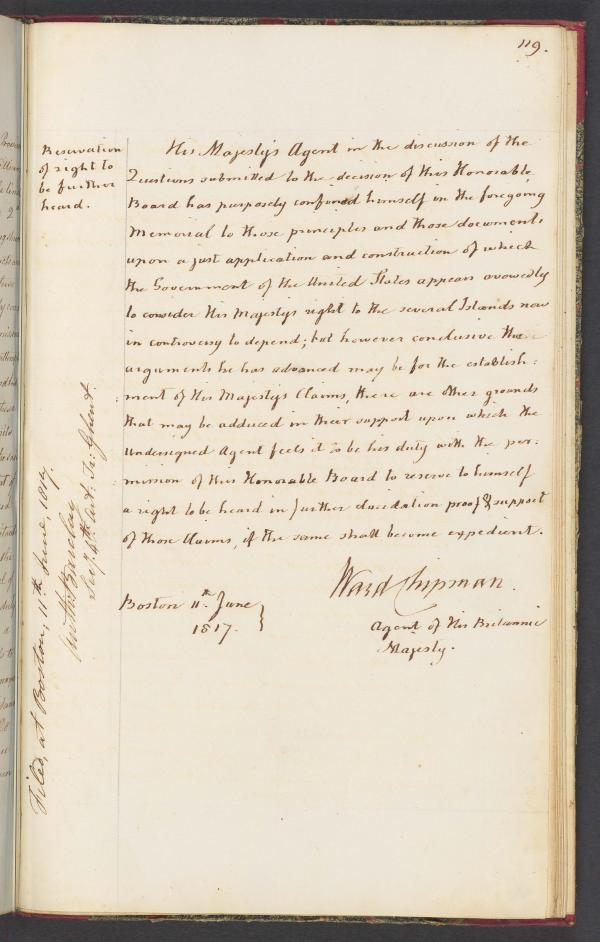 119.
Reservation
of right to
be further
heard.
His Majesty's Agent in the discussion of the
Questions submitted to the decision of this Honorable
Board has purposely confined himself in the foregoing
Memorial to those principles and those documents
upon a just application and construction of which
the Government of the United States appears avowedly
to consider His Majesty's right to the several Islands now
in controversy to depend; but however conclusive these
arguments he has advanced may be for the establish:
ment of His Majesty's Claims, there are other grounds
that may be adduced in their support upon which the
Undersigned Agent feels it to be his duty with the per:
mission of this Honorable Board to reserve to himself
a right to be heard in further elucidation proof & support
of those Claims, if the same shall become expedient.
Ward Chipman.
Agent of His Britannic
Majesty.
Boston 11th June
1817.
Filed, at Boston, 11th June, 1817.
Barclay
Secy 4th Art. Tr: Ghent.